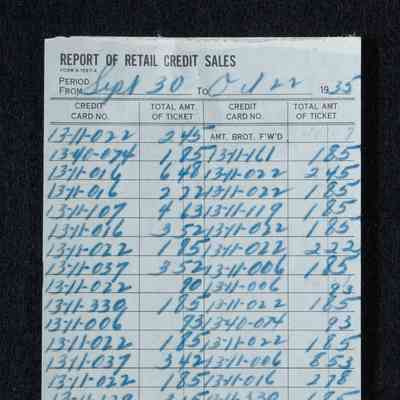 REPORT OF RETAIL CREDIT SALES
PERIOD
FROM Sept 30 TO Oct 22 1935
CREDIT CARD NO. TOTAL AMT. OF TICKET CREDIT CARD NO. TOTAL AMT. OF TICKET
13-11-022 245 AMT. BROT. F'W'D
13-40-074 185 13-11-161 185
13-11-016 648 13-11-022 245
13-11-016 222 13-11-022 185
13-11-107 463 13-11-119 185
13-11-016 352 13-11-022 185
13-11-022 185 13-11-022 222
13-11-037 352 13-11-006 185
13-11-022 90 13-11-006 93
13-11-330 185 13-11-022 185
13-11-006 93 13-40-074 93
13-11-022 185 13-11-022 185
13-11-037 342 13-11-006 853
13-11-022 185 13-11-016 278